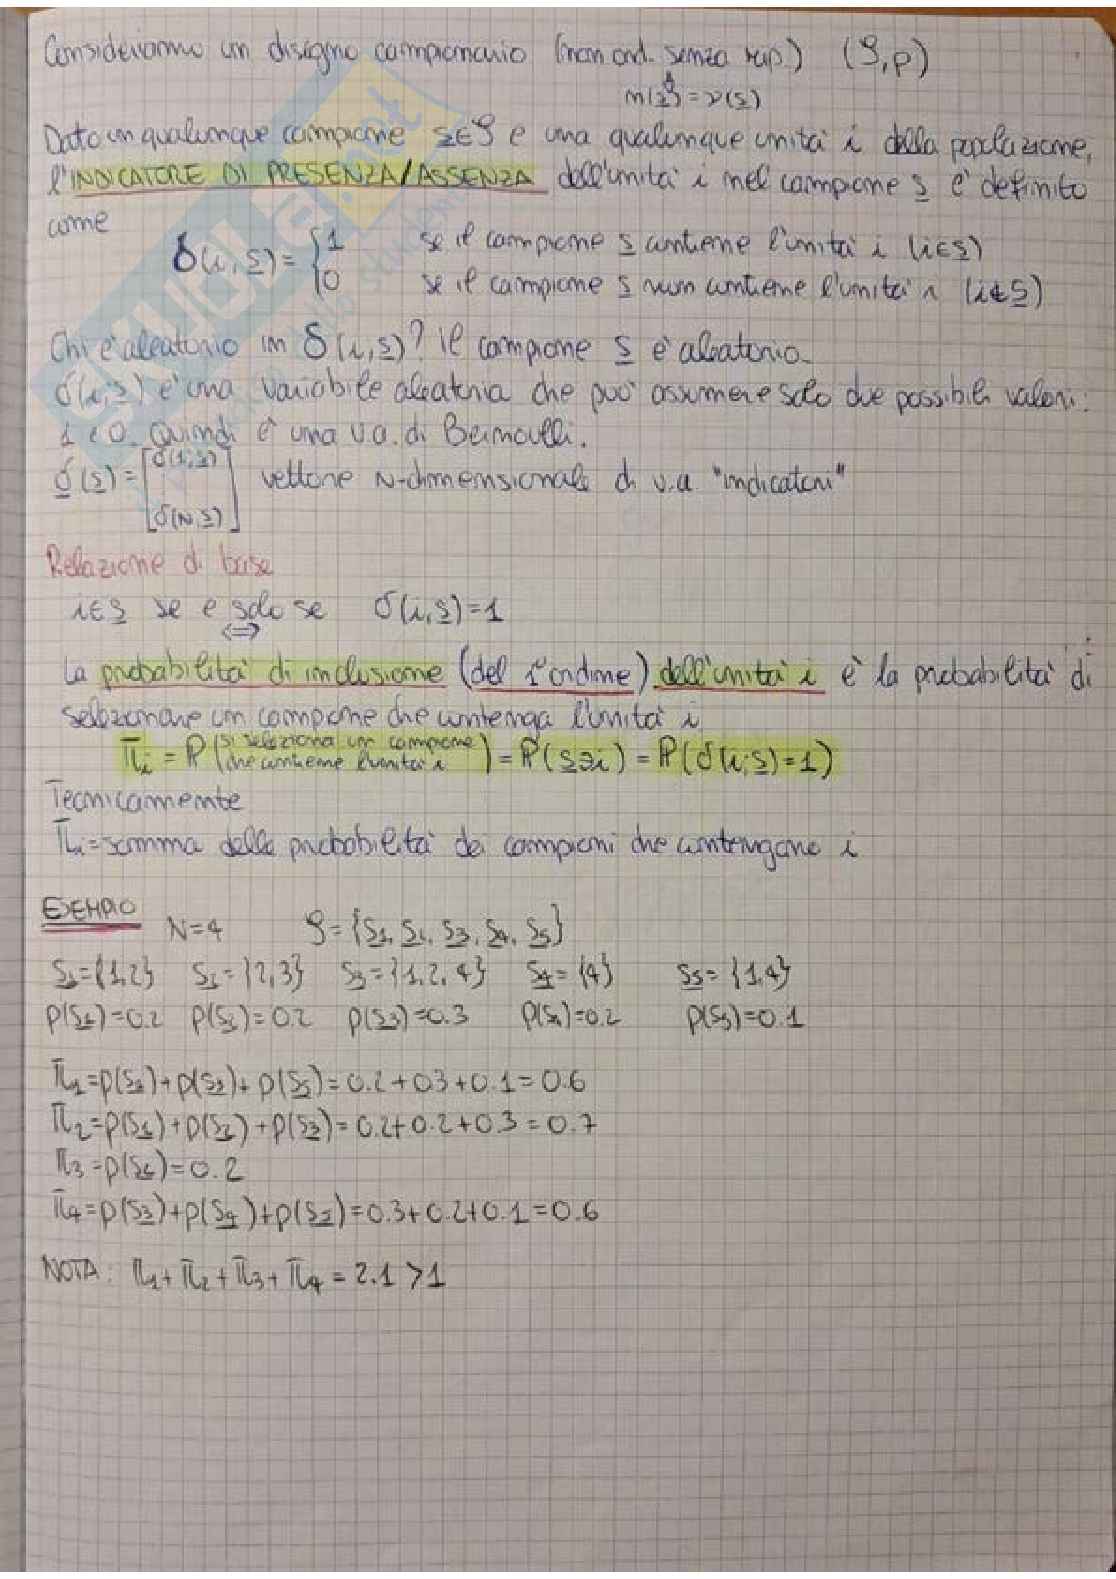 Consideriamo un disegno campionario (non ord. senza rip.) (S, p)
n(s) = ν(s)
Dato un qualunque campione s∈S e una qualunque unità i della popolazione,
l'INDICATORE DI PRESENZA/ASSENZA dell'unità i nel campione s è definito
come
δ(i, s) = { 1 se il campione s contiene l'unità i (i∈s)
0 se il campione s non contiene l'unità i (i∉s)
Chi è aleatorio in δ(i, s)? Il campione s è aleatorio.
δ(i; s) è una variabile aleatoria che può assumere solo due possibili valori:
1 e 0. Quindi è una v.a. di Bernoulli.
δ(s) = [ δ(1; s)
δ(N; s) ] vettore N-dimensionale di v.a "indicatori"
Relazione di base
i∈s se e solo se δ(i, s) = 1
⇔
La probabilità di inclusione (del 1° ordine) dell'unità i è la probabilità di
selezionare un campione che contenga l'unità i
π_i = P (si seleziona un campione che contiene l'unità i) = P(s∋i) = P(δ(i; s) = 1)
Tecnicamente
π_i = somma delle probabilità dei campioni che contengono i
ESEMPIO N=4 S = {s1, s2, s3, s4, s5}
s1={1,2} s2={2,3} s3={1,2,4} s4={4} s5={1,4}
p(s1)=0.2 p(s2)=0.2 p(s3)=0.3 p(s4)=0.2 p(s5)=0.1
π1=p(s1)+p(s3)+p(s5)=0.2+0.3+0.1=0.6
π2=p(s1)+p(s2)+p(s3)=0.2+0.2+0.3=0.7
π3=p(s2)=0.2
π4=p(s3)+p(s4)+p(s5)=0.3+0.2+0.1=0.6
NOTA: π1+π2+π3+π4=2.1>1